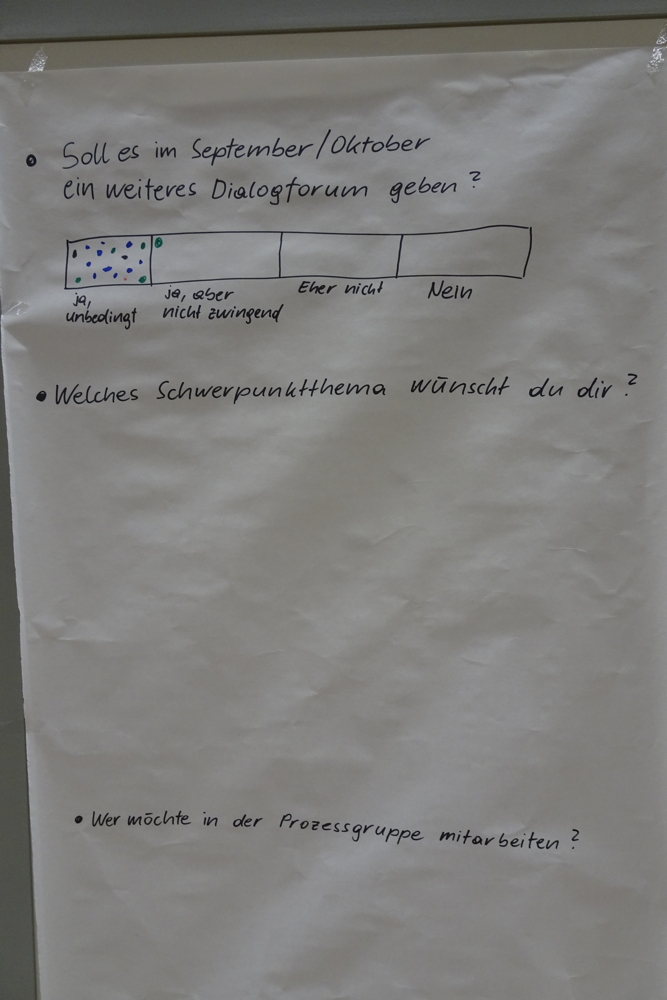 • Soll es im September/Oktober
ein weiteres Dialogforum geben?
ja,
unbedingt
ja, aber
nicht zwingend
Eher nicht
Nein
• Welches Schwerpunktthema wünscht du dir?
• Wer möchte in der Prozessgruppe mitarbeiten?